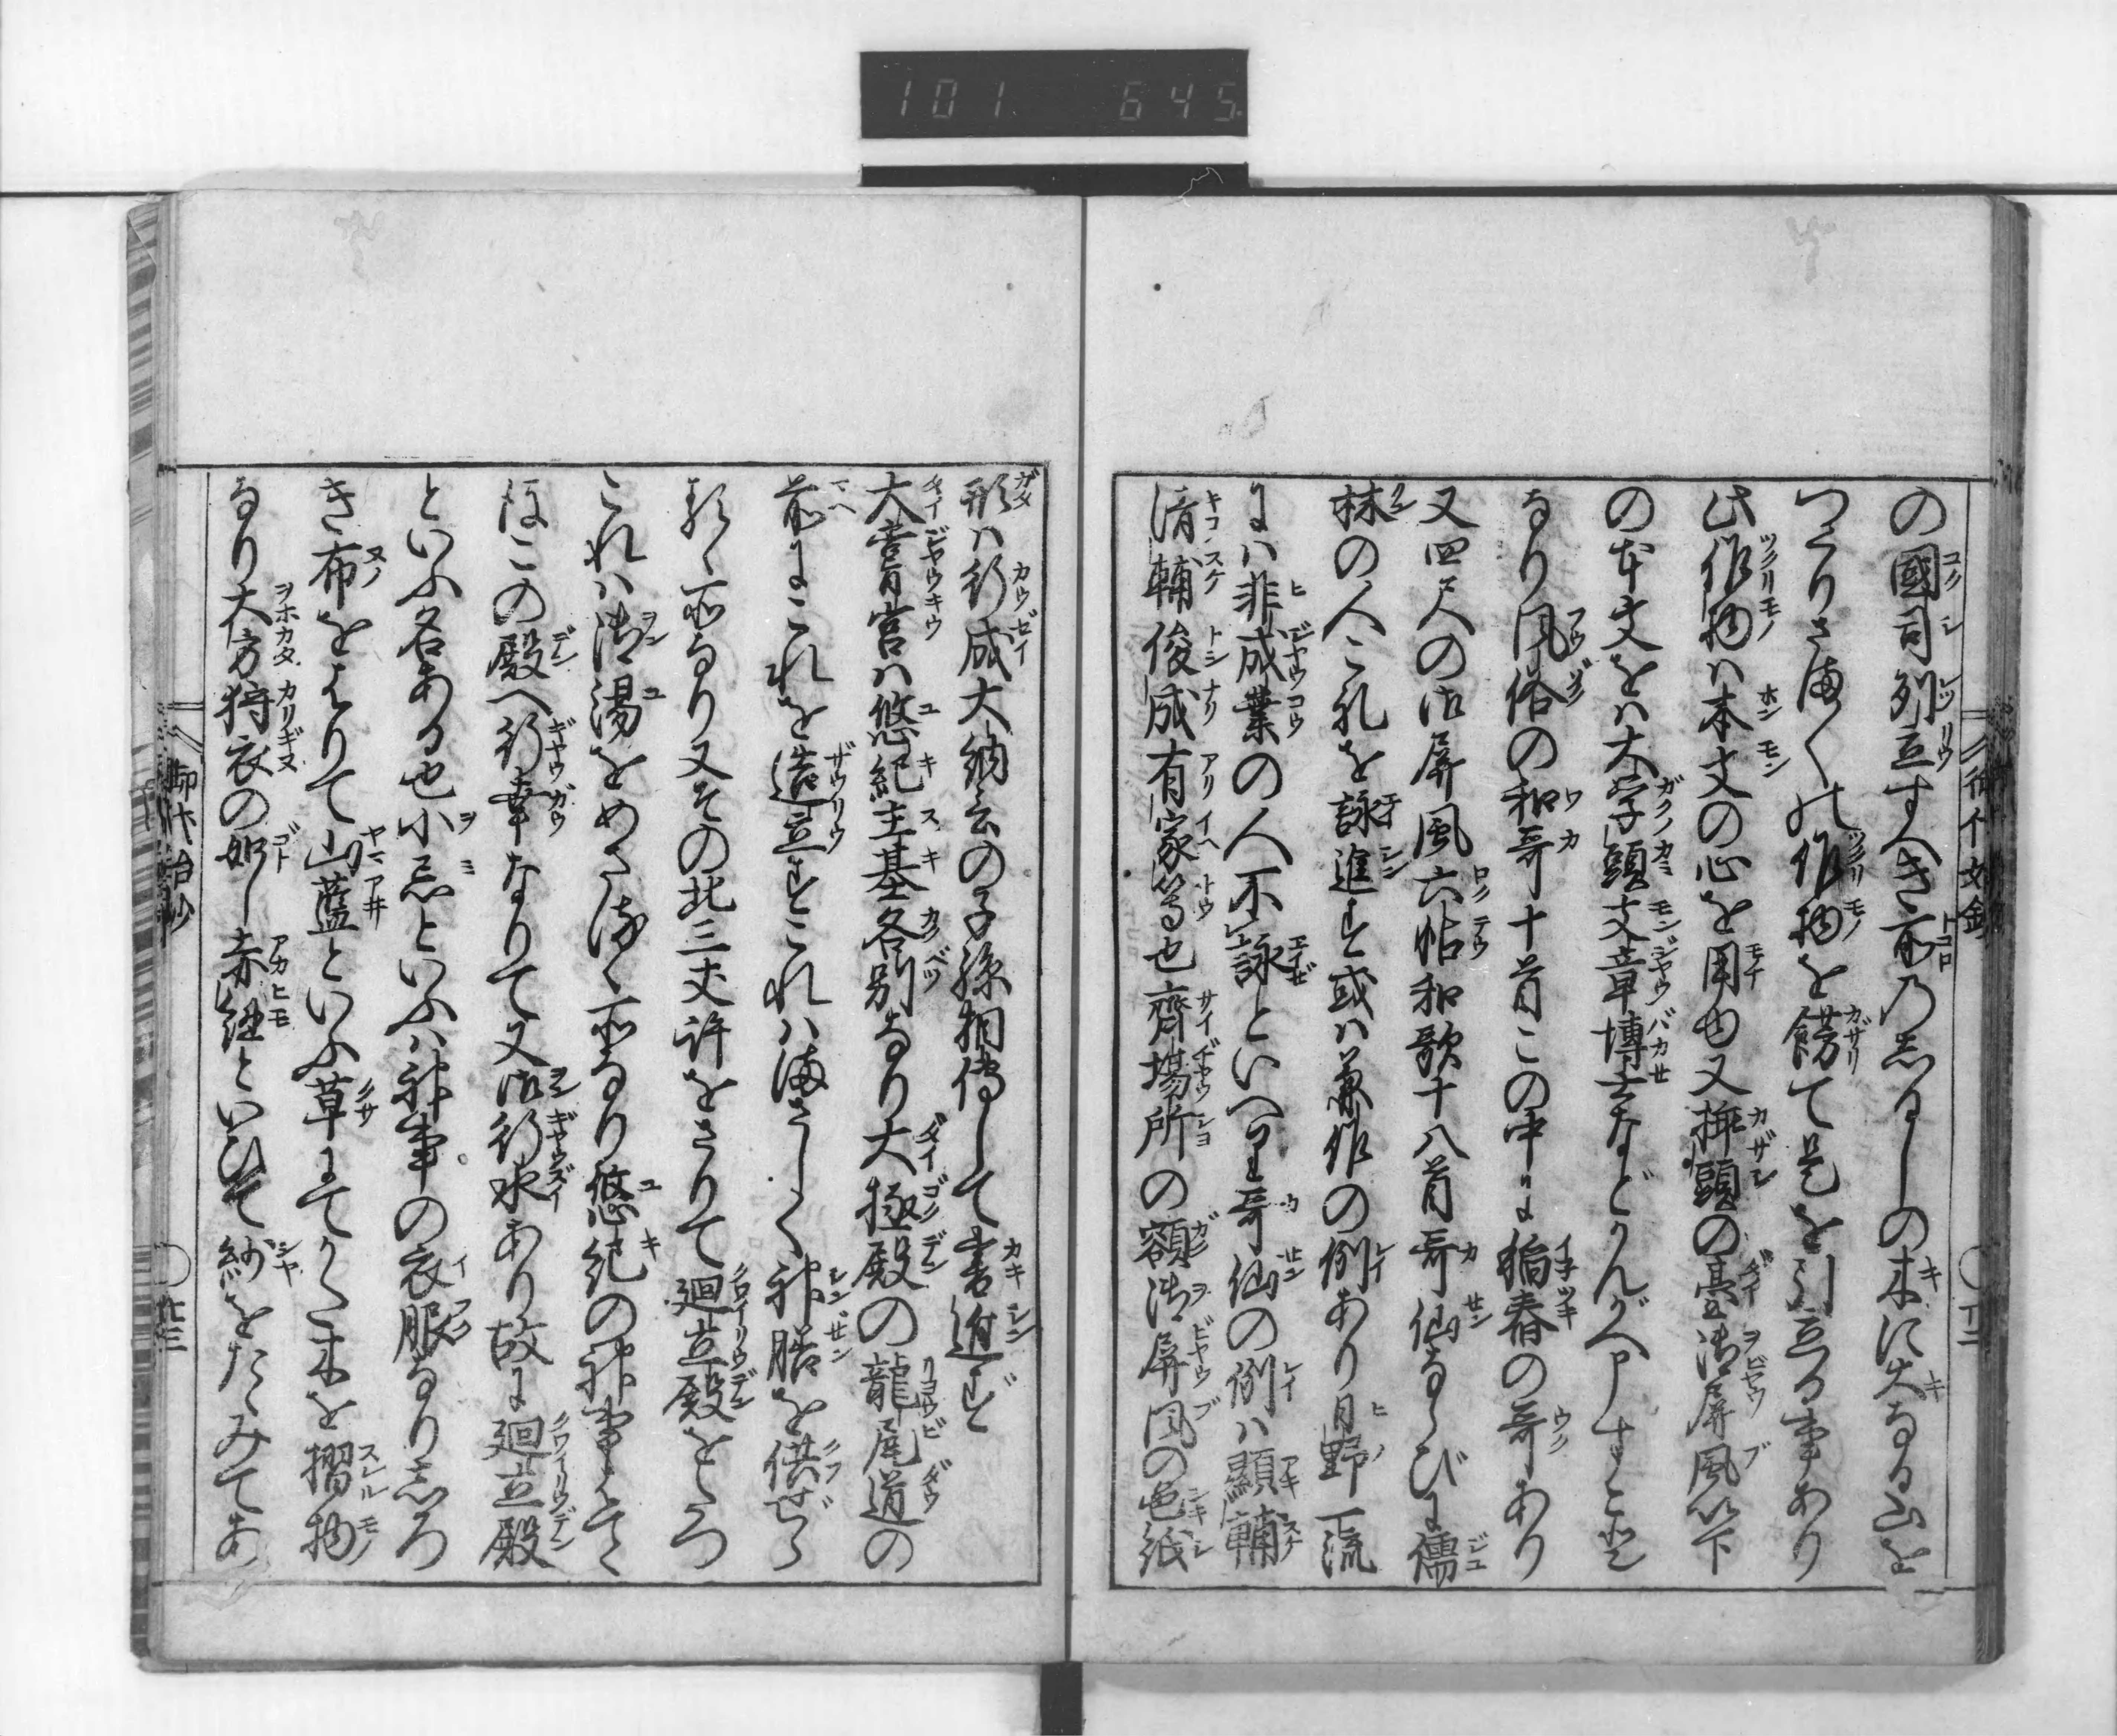 の國司列立すへき所乃しるしの木に大なる山を
つくりさま〱の作物を餝て是を引立る事あり
此作物ハ本文の心を用也又挿頭の臺御屏風以下
の本文をハ大学頭文章博士などかんがへ申すこと
なり風俗の和哥十首この中に稲舂の哥あり
又四尺の御屏風六帖和歌十八首哥仙ならびに儒
林の人これを詠進す或ハ兼作の例あり日野一流
にハ非成業の人不詠といへり哥仙の例ハ顯輔
清輔俊成有家等也齊場所の額御屏風の色紙
形ハ行成大納言の子孫相傳して書進ず
大嘗宮ハ悠紀主基各別なり大極殿の龍尾道の
前にこれを造立すこれハまさしく神膳を供ぜら
るゝ所なり又その北三丈許をさりて廻立殿をたつ
これハ御湯をめさるゝ所なり悠紀の神事はてゝ
後この殿へ行幸なりて又御行水あり故に廻立殿
といふ名ある也小忌といふハ神事の衣服なりしろ
き布をはりて山藍といふ草にてかた木を摺物
なり大方狩衣の如し赤紐といひて紗をたゝみてあ
御代始抄
101 645